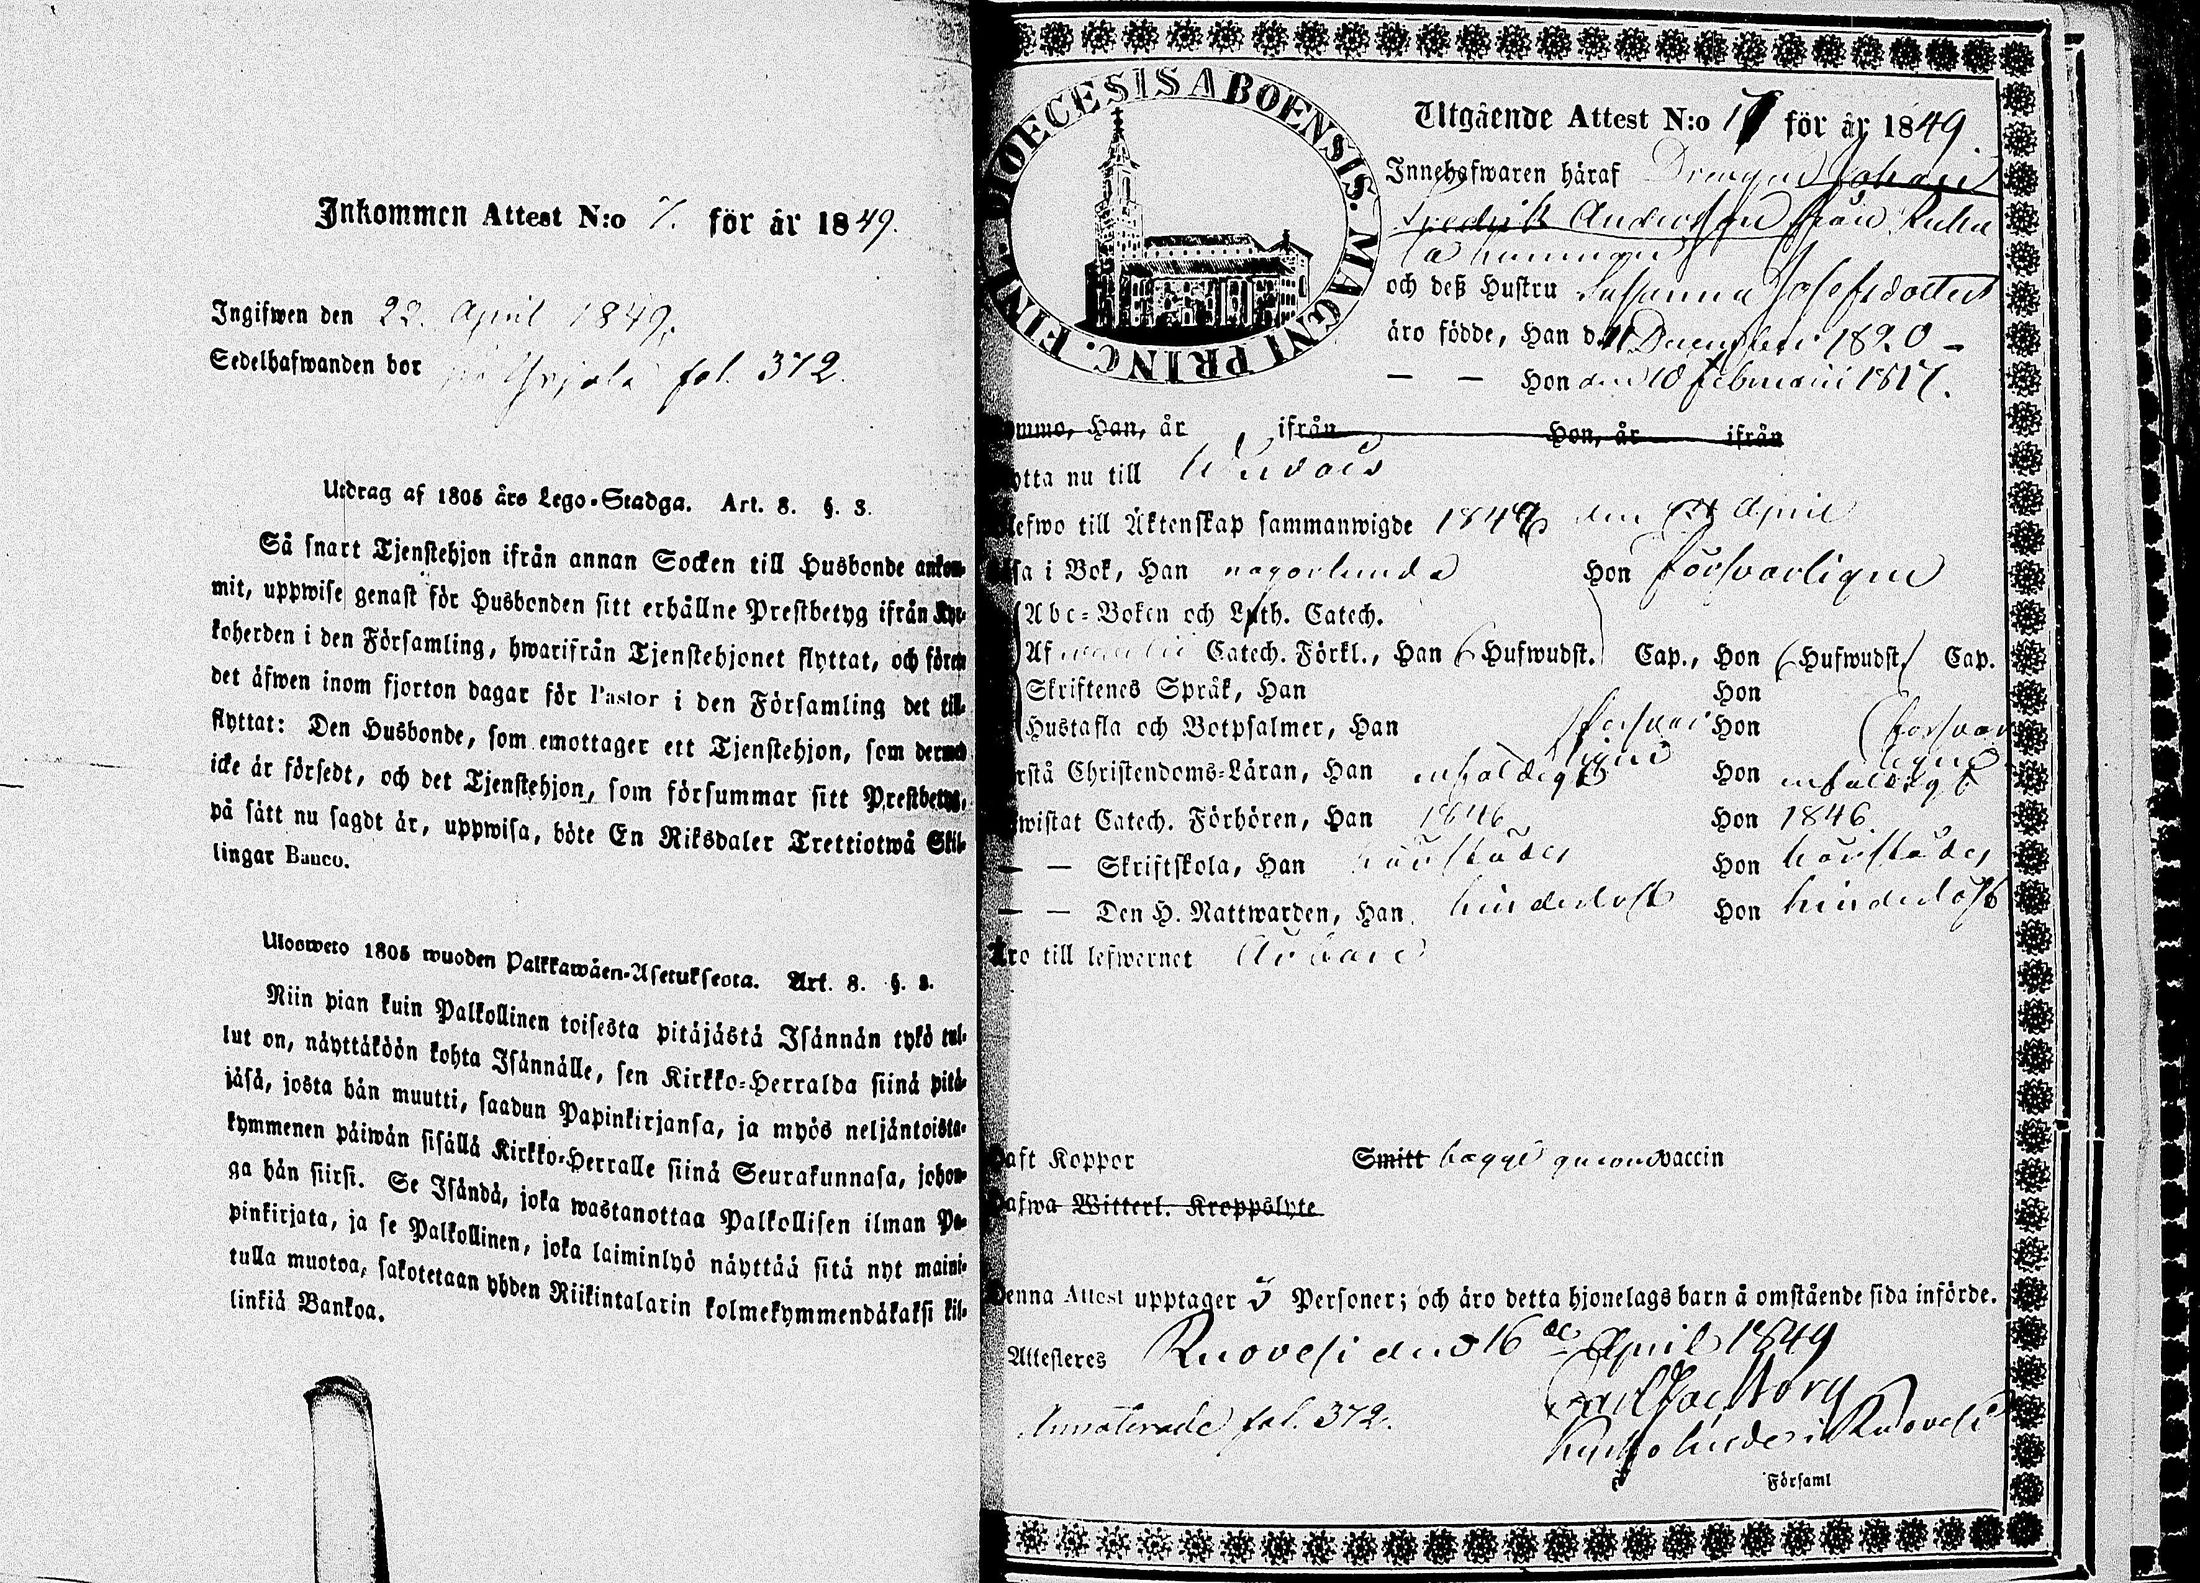 Inkommen Attest N:o 7. för år 1849.
Ingifwen den 22. April 1849.
Sedelhafwanden bor Yrjola fol. 372.
Utdrag af 1805 års Lego-Stadga. Art. 8. §. 3.
Så snart Tjenstehjon ifrån annan Socken till Husbonde ankom-
mit, uppwise genast för Husbonden sitt erhållne Prestbetyg ifrån Kyr-
koherden i den Församling, hwarifrån Tjenstehjonet flyttat, och förete
det äfwen inom fjorton dagar för Pastor i den Församling det till-
flyttat: Den Husbonde, som emottager ett Tjenstehjon, som dermed
icke är försedt, och det Tjenstehjon, som försummar sitt Prestbetyg,
på sätt nu sagdt är, uppwisa, böte En Riksdaler Trettiotwå Skil-
lingar Banco.
Uloosweto 1805 wuoden Palkkawäen-Asetuksesta. Art. 8. §. 3.
Niin pian kuin Palkollinen toisesta pitäjästä Isännän tykö tul-
lut on, näyttäköön kohta Isännälle, sen Kirkko-Herralda siinä pitä-
jäsä, josta hän muutti, saadun Papinkirjansa, ja myös neljäntoista-
kymmenen päiwän sisällä Kirkko-Herralle siinä Seurakunnasa, johon-
ga hän siirsi. Se Isändä, joka wastanottaa Palkollisen ilman Pa-
pinkirjata, ja se Palkollinen, joka laiminlyö näyttää sitä nyt maini-
tulla muotoa, sakotetaan yhden Riikintalarin kolmekymmendäkaksi kil-
linkiä Bankoa.
DIOECESIS ABOENSIS. MAGNI PRINC. FINL.
Utgående Attest N:o 17 för år 1849.
Innehafwaren häraf Drengen Johan
Fredrik Andersson från Ruha
la
och deß Hustru Susanna Josefsdotter
äro födde, Han d. 11 December 1820 -
— — Hon den 10 Februarii 1817.
ommo, Han, år ifrån Hon, år ifrån
otta nu till
lefwo till Äktenskap sammanwigde 1849 den April
äsa i Bok, Han någorlunda Hon försvarligen
Abc-Boken och Luth. Catech.
Af Catech. Förkl., Han (Hufwudst.) Cap., Hon (Hufwudst.) Cap.
Skriftenes Språk, Han Hon
Hustafla och Botpsalmer, Han försvar Hon försvar
ligen ligen
rstå Christendoms-Läran, Han enfaldigt Hon enfaldigt
wistat Catech. Förhören, Han 1846 Hon 1846
— — Skriftskola, Han Hon
— — Den H. Nattwarden, Han hinderlöst Hon hinderlöst
Äro till lefwernet
Haft Koppor Smitt begge genom vaccin
Hafwa Witterl. Kroppslyte
Denna Attest upptager 3 Personer; och äro detta hjonelags barn å omstående sida införde.
Attesteras Ruovesi den 16de April 1849
Carl Jac. Borg
Annoterade fol. 372. Kyrkoherde i Ruovesi
Församl